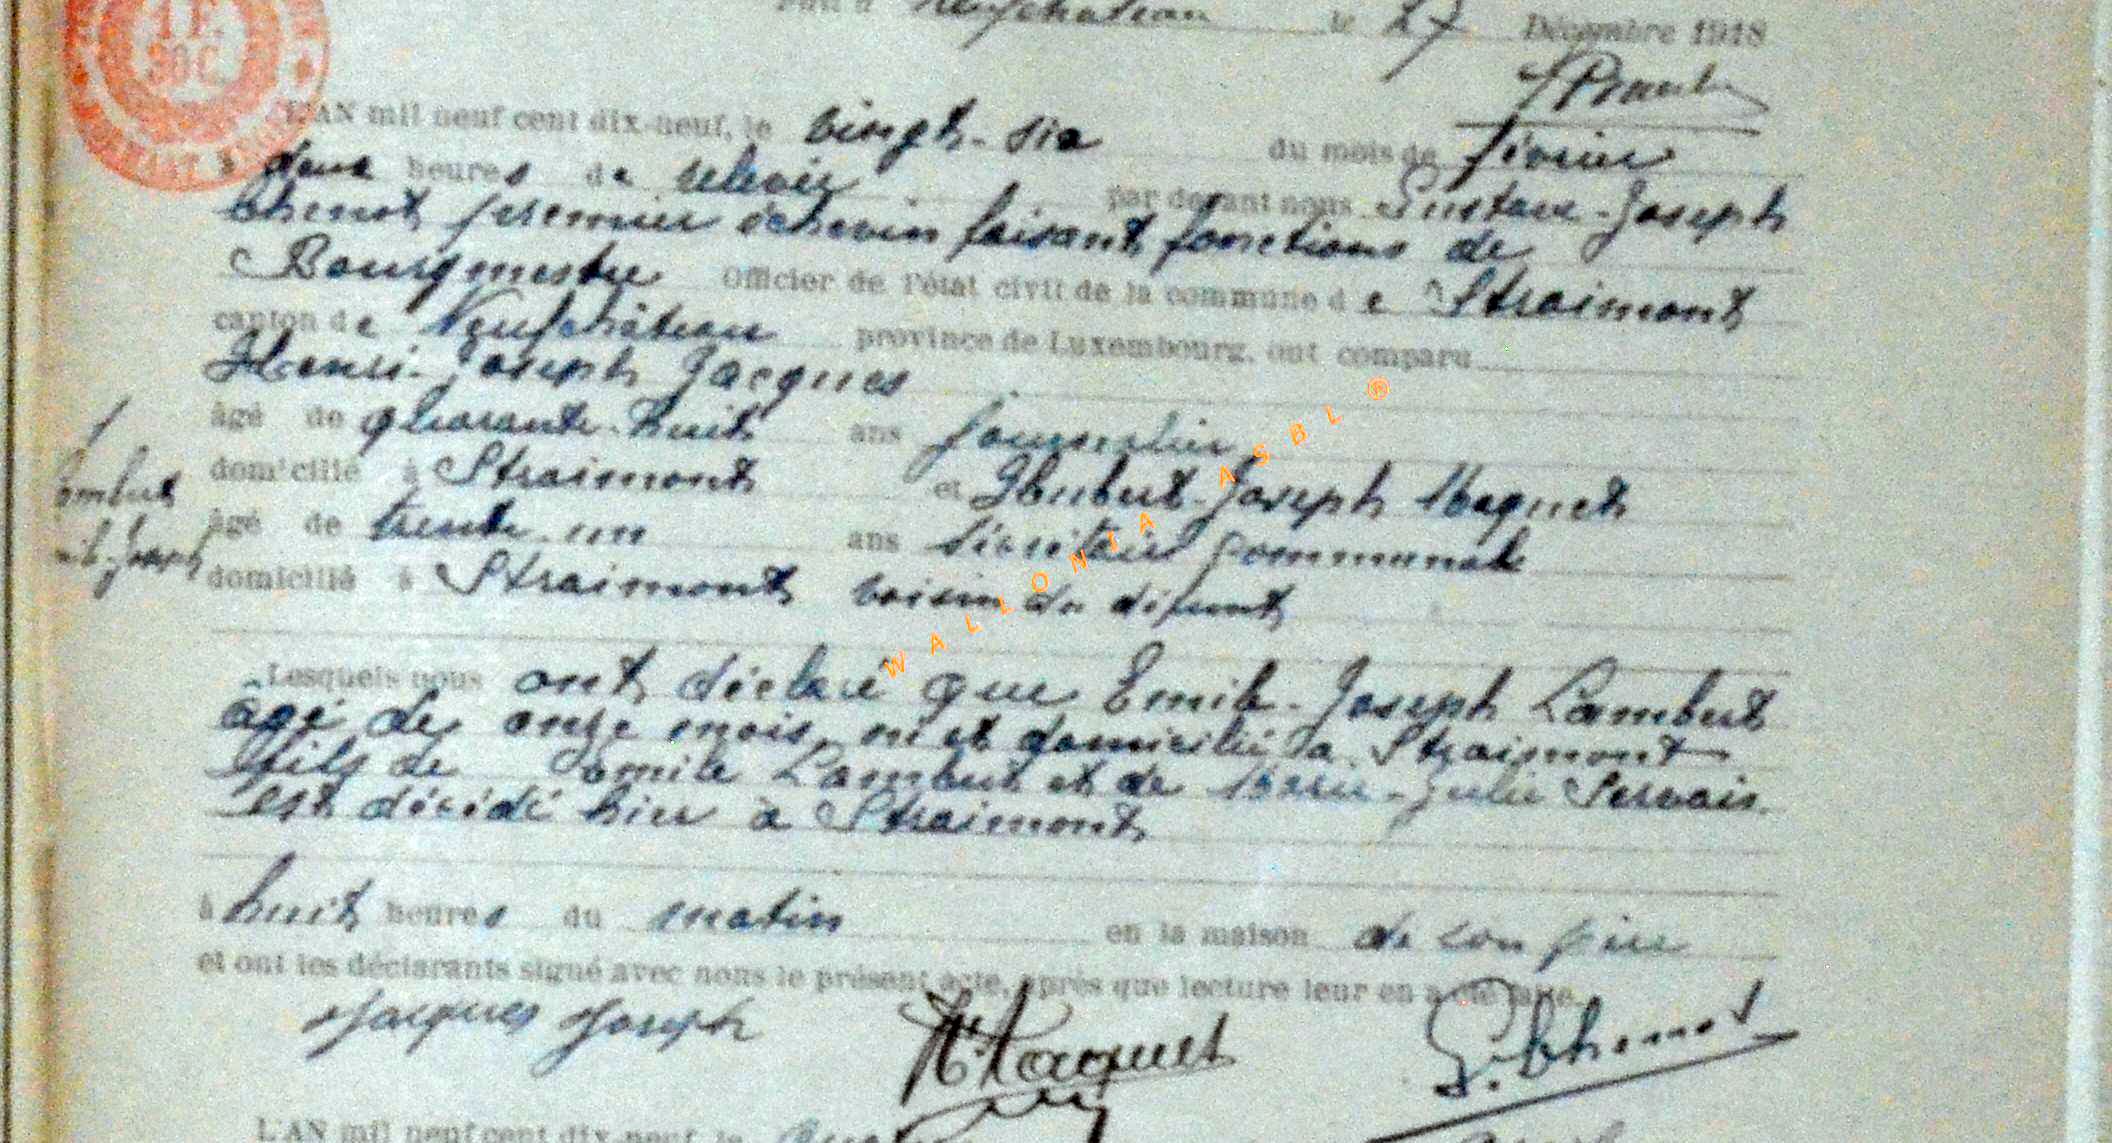 Fait à Neufchâteau le 27 Décembre 1918
L'AN mil neuf cent dix-neuf, le vingt-six du mois de février
à deux heures de relevée par devant nous Gustave-Joseph
Thenot premier échevin faisant fonctions de
Bourgmestre Officier de l'état civil de la commune de Straimont
canton de Neufchâteau province de Luxembourg, ont comparu
Henri-Joseph Jacques
âgé de quarante-huit ans journalier
domicilié à Straimont et Hubert-Joseph Maquet
âgé de trente-un ans secrétaire communal
domicilié à Straimont voisin du défunt
Lambert
Lesquels nous ont déclaré que Emile-Joseph Lambert
âgé de onze mois, né et domicilié à Straimont
fils de Emile Lambert et de Marie-Julie Servais
est décédé hier à Straimont
à huit heures du matin en la maison de son père
et ont les déclarants signé avec nous le présent acte, après que lecture leur en a été faite.
Jacques Joseph H. Maquet G. Thenot
L'AN mil neuf cent dix-neuf, le
WALLONIA ASBL ®